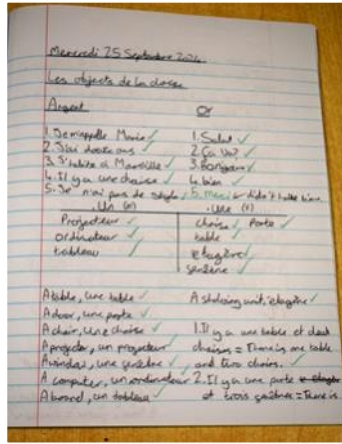 Mercredi 25 Septembre 2024
Les objects de la classe
Argent
Or
1. Je m'appelle Marie
2. J'ai douze ans
3. J'habite à Marseille
4. Il y a une chaise
5. Je n'ai pas de stylo
1. Salut
2. Ça Va?
3. Bonjour
4. bien
5. merci didn't have time
Un (m)
Une (f)
Projecteur
ordinateur
tableau
chaise Porte
table
etagère
fenêtre
A table, une table
A door, une porte
A chair, une chaise
A projector, un projecteur
A window, une fenêtre
A computer, un ordinateur
A board, un tableau
A shelving unit, etagère
1. Il y a une table et deux
chaises = There is one table
and two chairs.
2. Il y a une porte
et trois fenêtres = There is